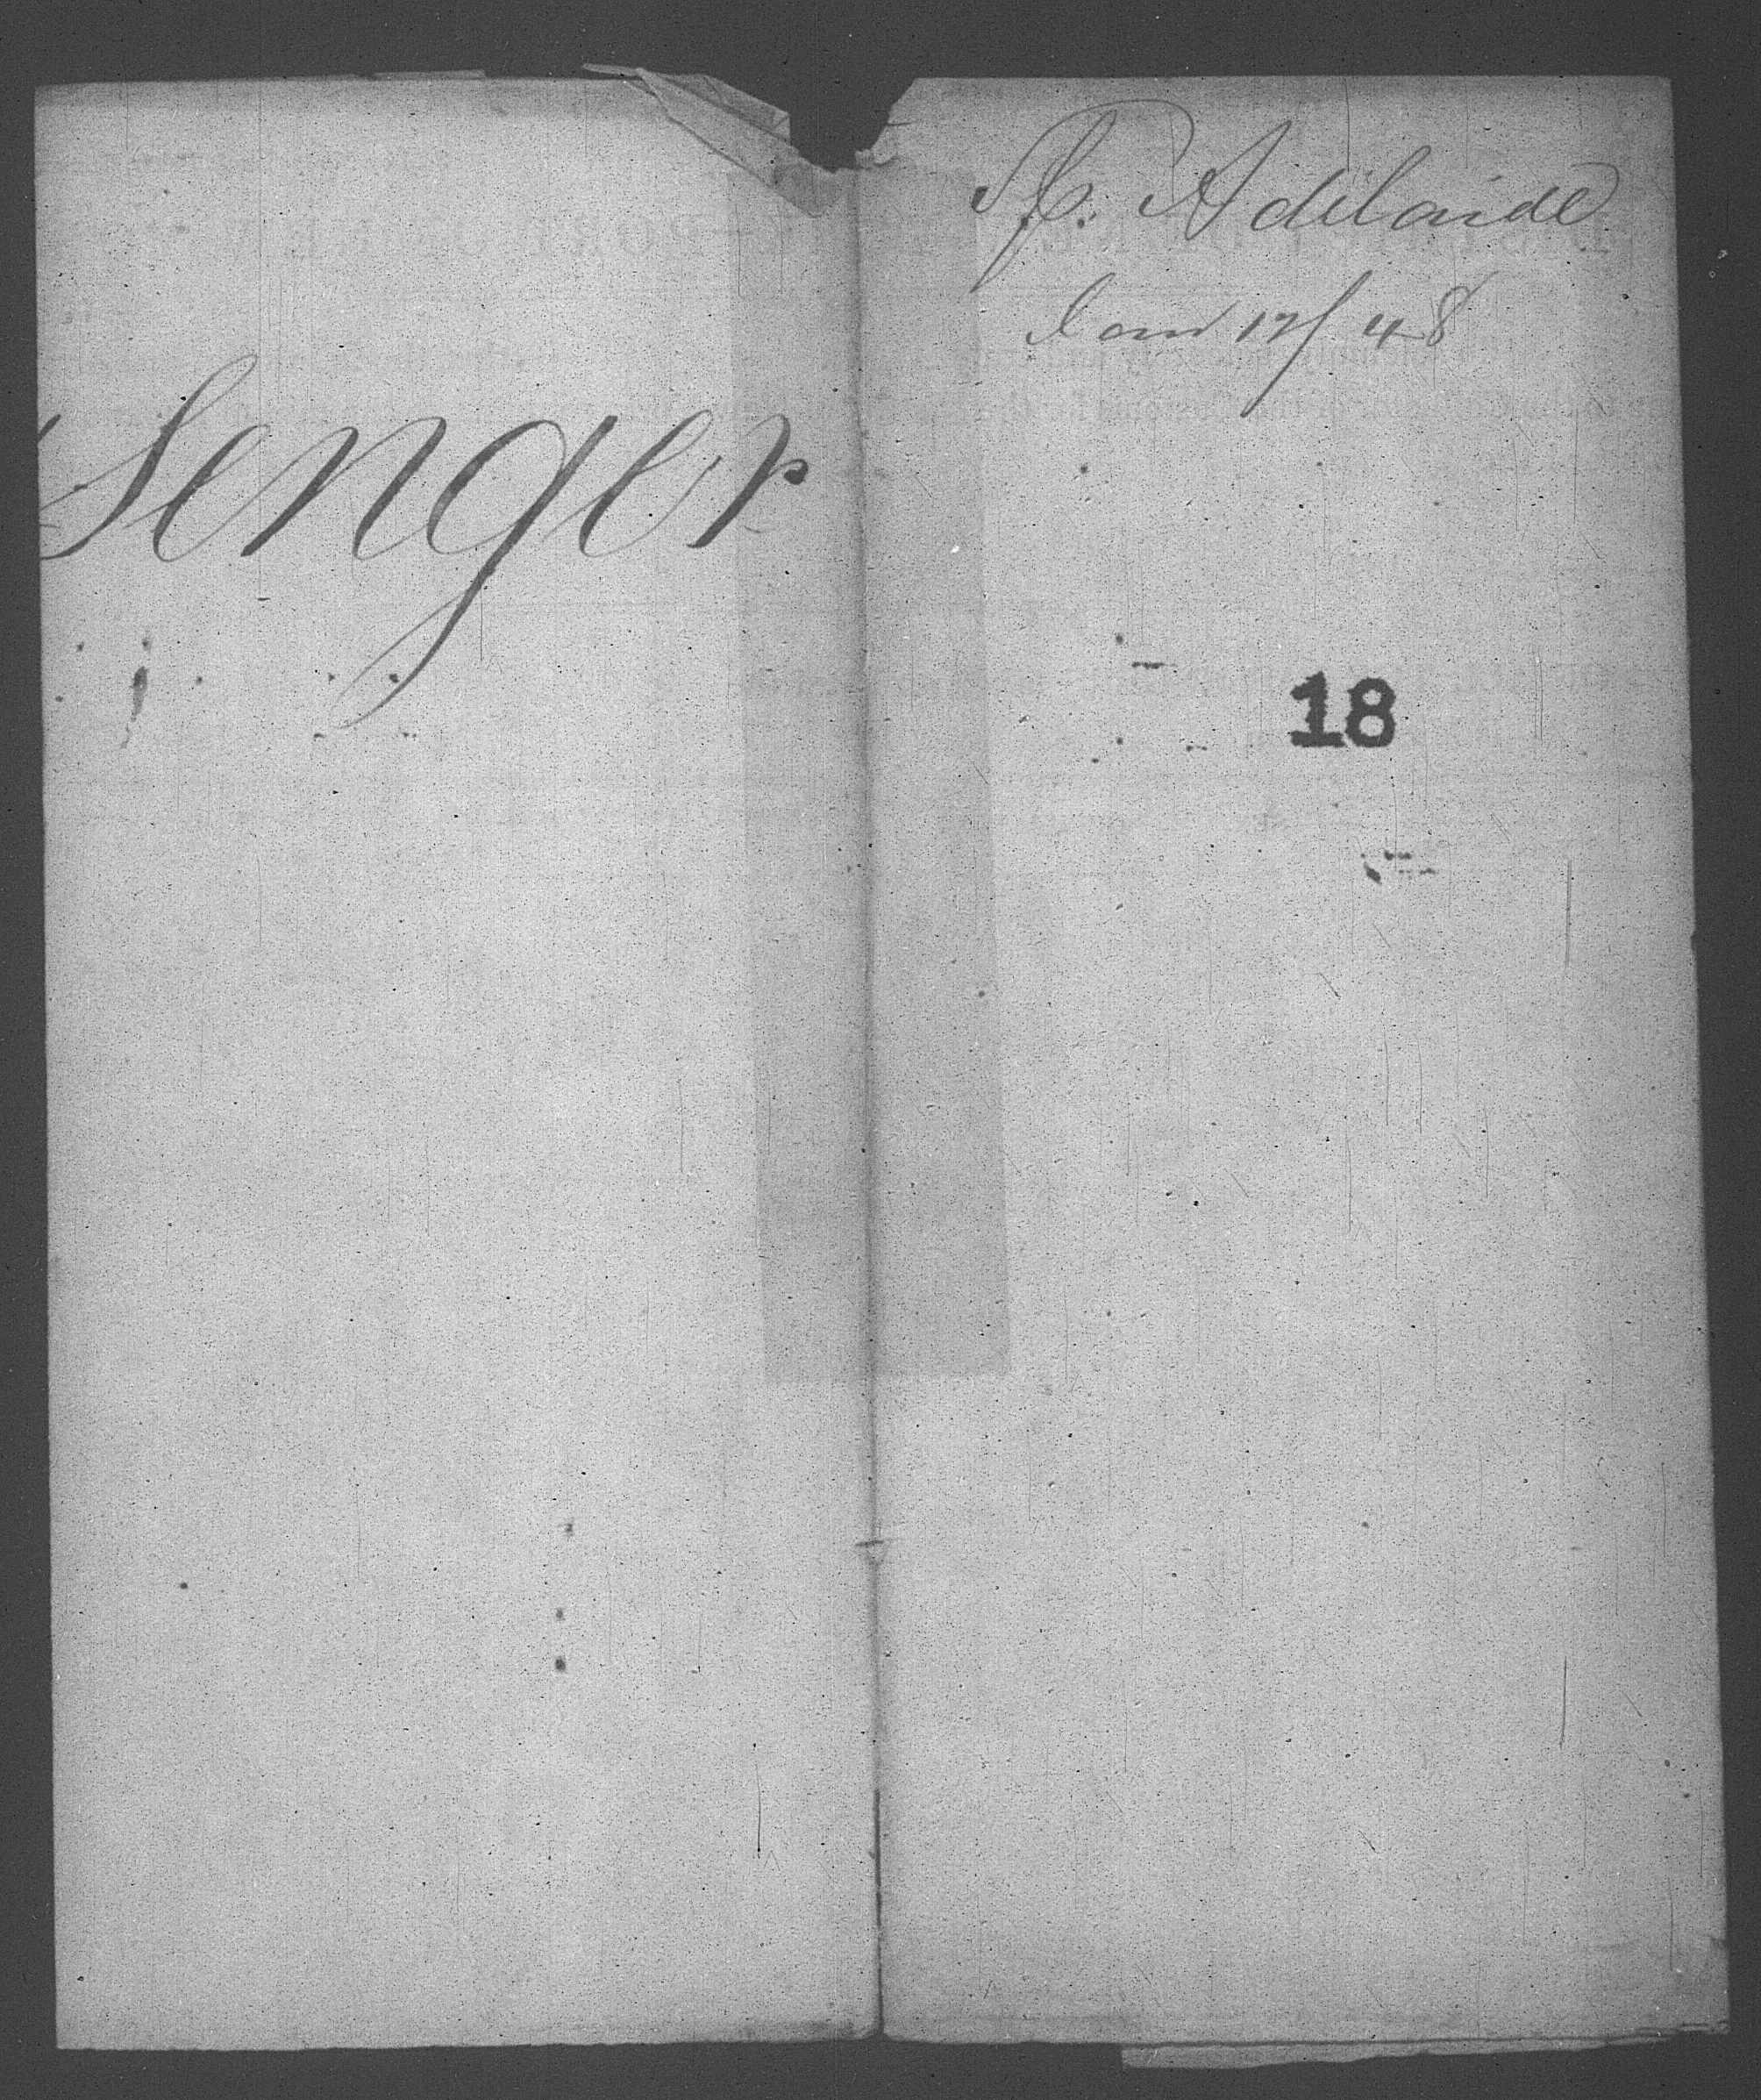 senger
Adelaide
Jan 17/48
18